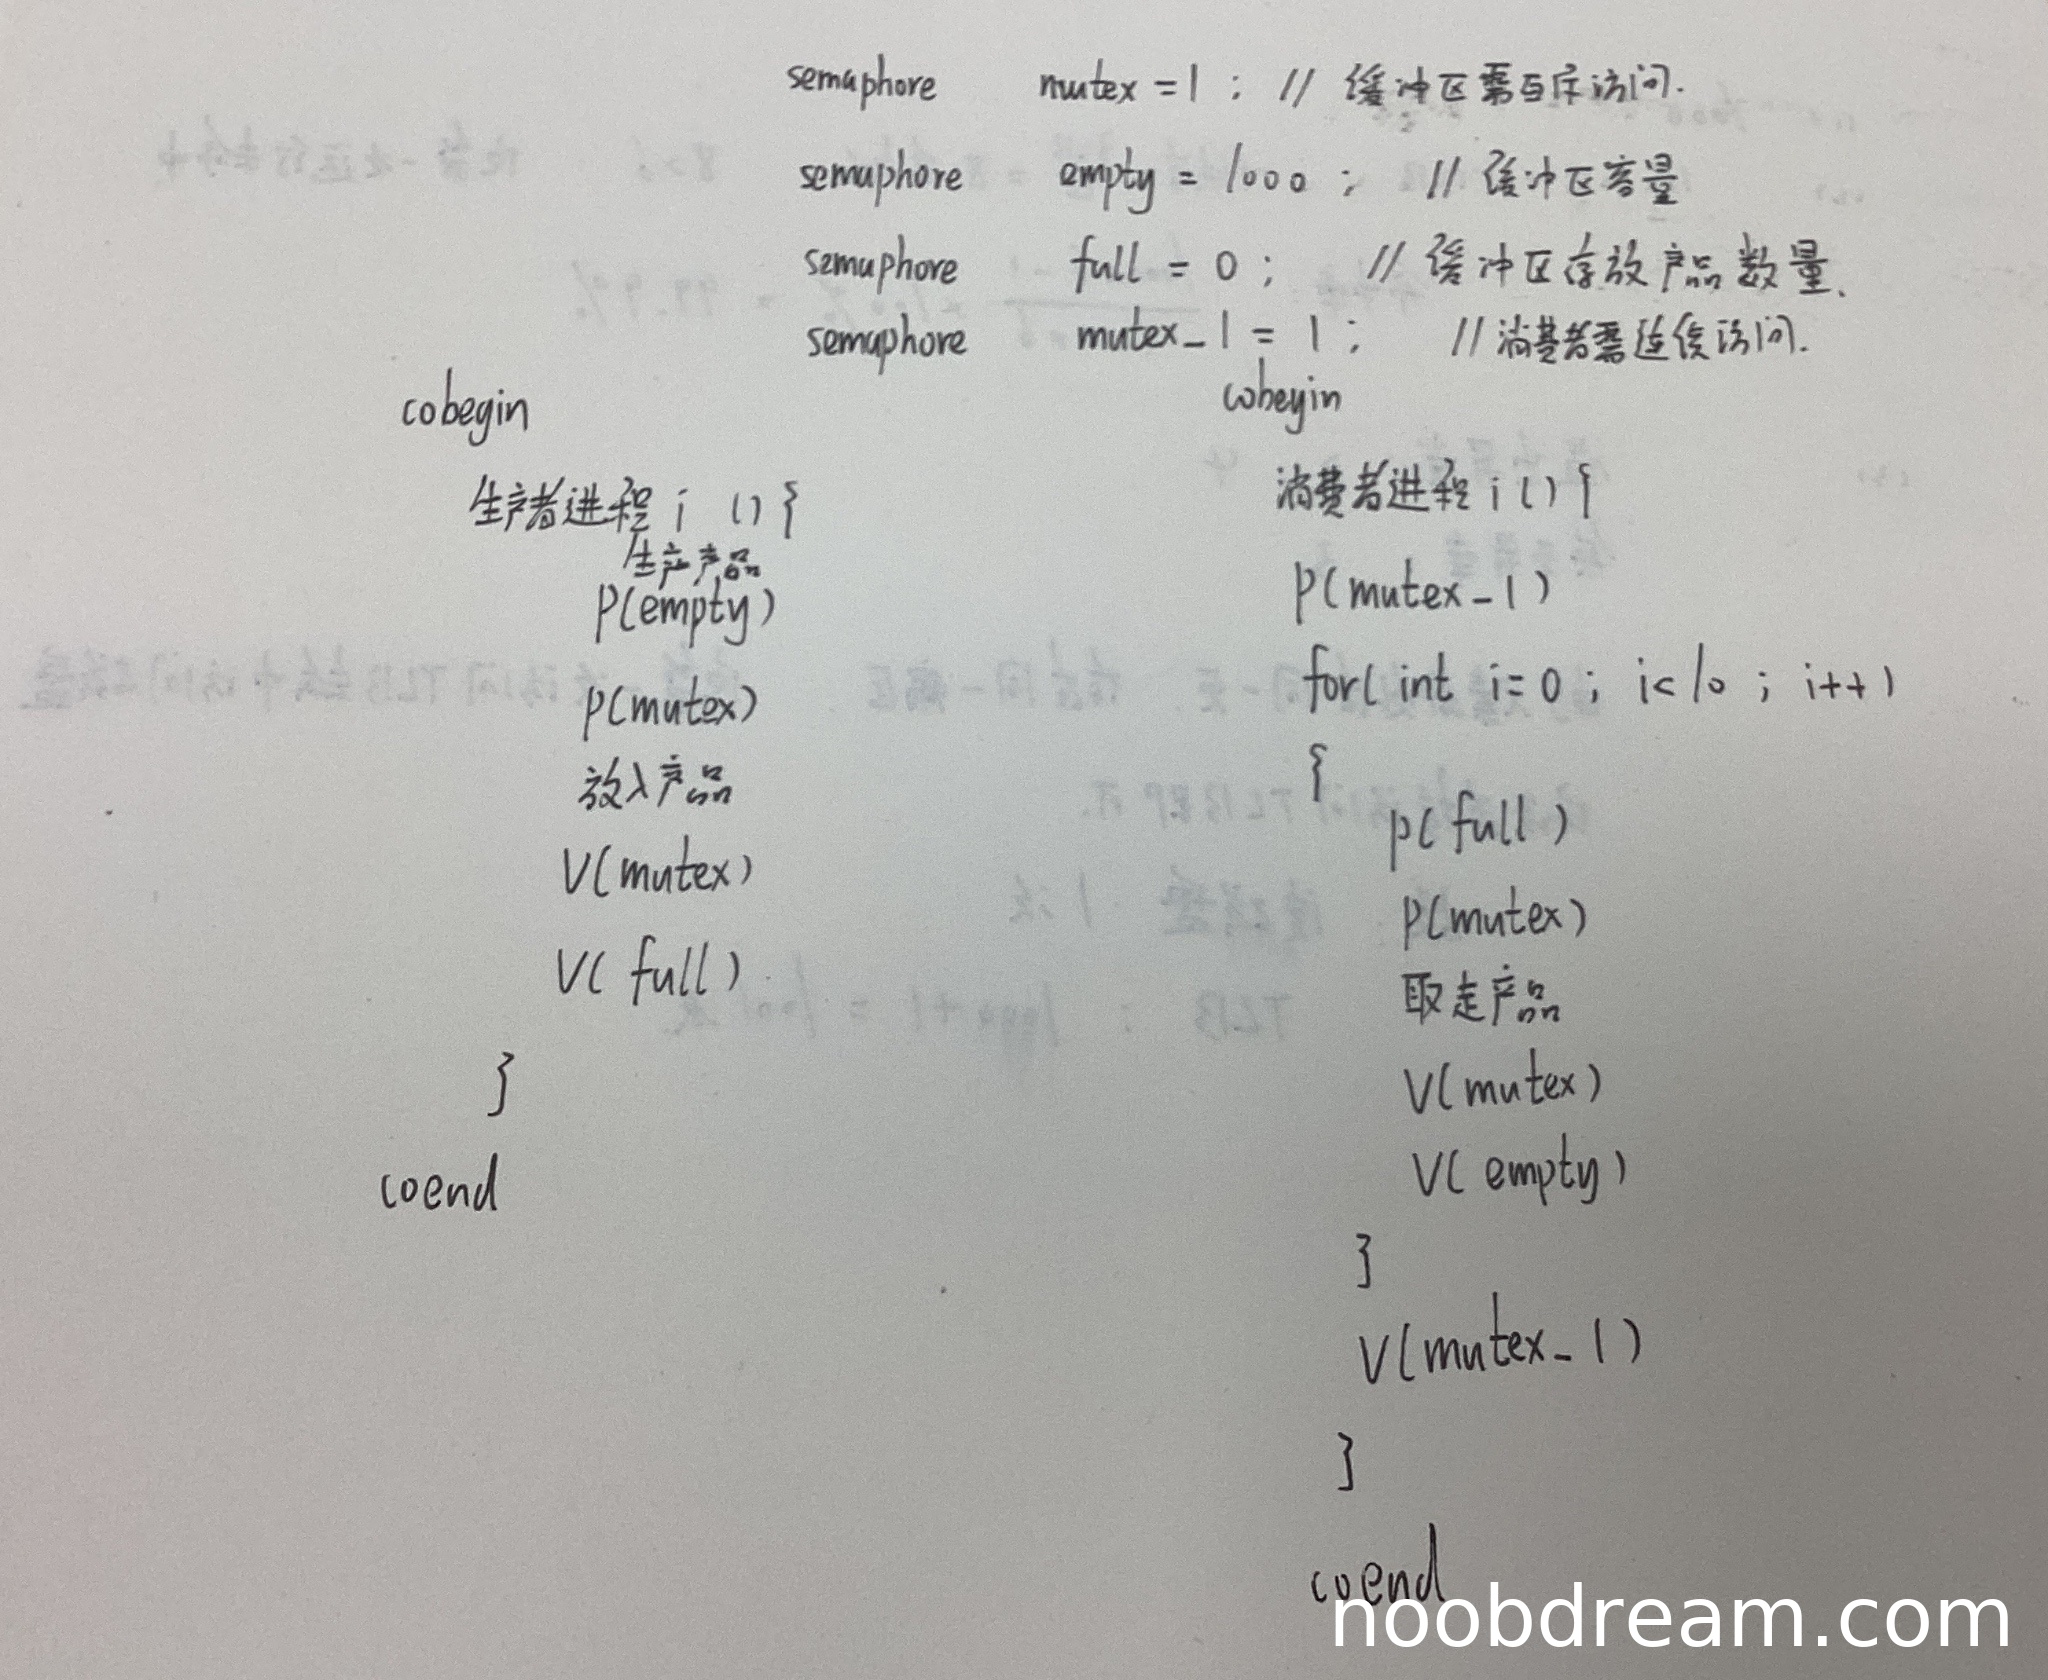 semaphore mutex = 1 ; // 缓冲区需互斥访问.
semaphore empty = 1000 ; // 缓冲区容量
semaphore full = 0 ; // 缓冲区存放产品数量.
semaphore mutex_1 = 1 ; // 消费者需连续访问.
cobegin
生产者进程 i () {
生产产品
P(empty)
P(mutex)
放入产品
V(mutex)
V( full )
}
coend
cobegin
消费者进程 i () {
P(mutex_1)
for( int i = 0 ; i < 10 ; i++ )
{
P( full )
P(mutex)
取走产品
V(mutex)
V( empty )
}
V(mutex_1)
}
coend
noobdream.com